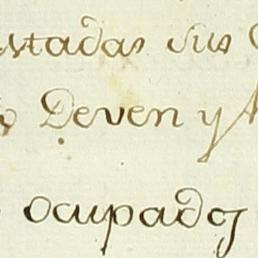 tadas sus
Deven y
ocupados